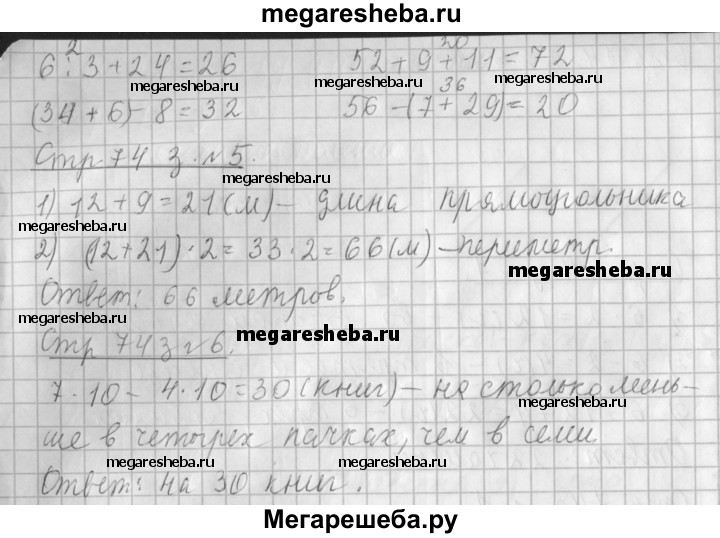 megaresheba.ru
2 20
6 : 3 + 24 = 26 52 + 9 + 11 = 72
megaresheba.ru megaresheba.ru
36
(34 + 6) - 8 = 32 56 - (7 + 29) = 20
Стр 74 з. №5.
megaresheba.ru
1) 12 + 9 = 21 (м) - длина прямоугольника
2) (12 + 21) · 2 = 33 · 2 = 66 (м) - периметр.
megaresheba.ru
Ответ: 66 метров.
megaresheba.ru megaresheba.ru
Стр 74 з №6.
7 · 10 - 4 · 10 = 30 (книг) - на столько мень-
megaresheba.ru megaresheba.ru
ше в четырех пачках, чем в семи
megaresheba.ru megaresheba.ru
Ответ: на 30 книг.
Мегарешеба.ру